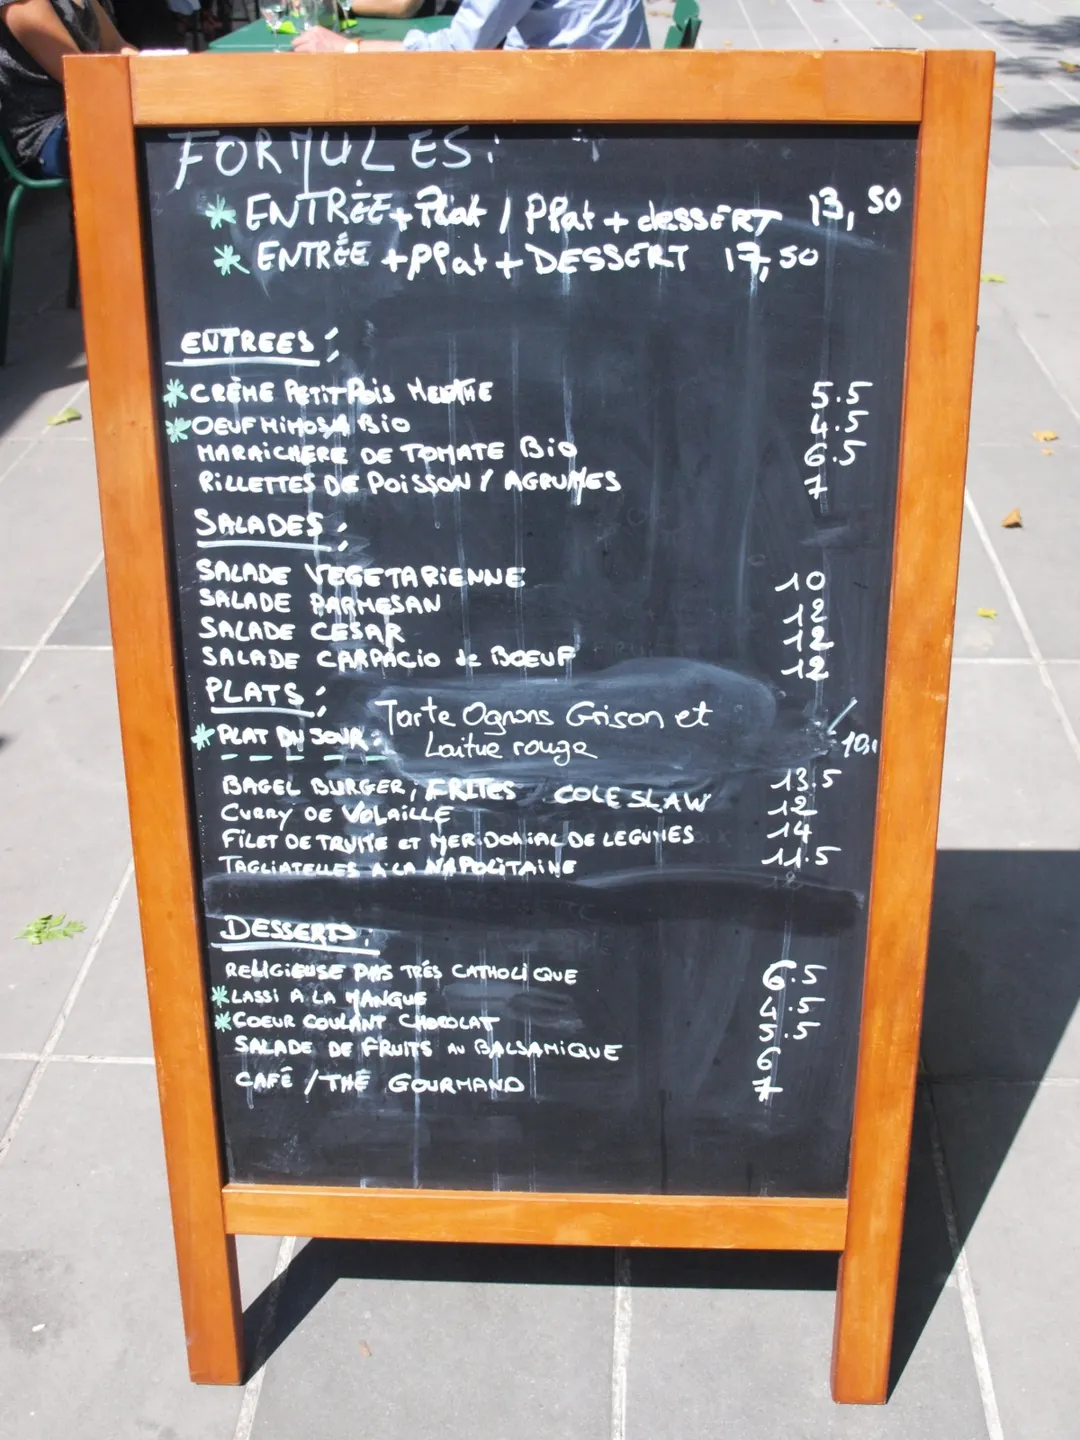 FORMULES:
* ENTRÉE + Plat / Plat + dessERT 13,50
* ENTRÉE + Plat + DESSERT 17,50
ENTREES:
* CRÈME PETIT POIS MENTHE 5.5
* OEUF MIMOSA BiO 4.5
MARAICHERE DE TOMATE BiO 6.5
RILLETTES DE POISSON / AGRUMES 7
SALADES:
SALADE VEGETARIENNE 10
SALADE PARMESAN 12
SALADE CESAR 12
SALADE CARPACIO de BOEUF 12
PLATS:
* PLAT DU JOUR: Tarte Ognons Grison et
Laitue rouge 10,
BAGEL BURGER, FRITES COLE SLAW 13.5
CURRY DE VOLAILLE 12
FILET DE TRUITE ET MERIDONIAL DE LEGUMES 14
TAGLIATELLES A LA NAPOLITAINE 11.5
DESSERTS:
RELIGIEUSE PAS TRÉS CATHOLIQUE 6.5
* LASSI A LA MANGUE 4.5
* COEUR COULANT CHOCOLAT 5.5
SALADE DE FRUITS AU BALSAMIQUE 6
CAFÉ / THÉ GOURMAND 7